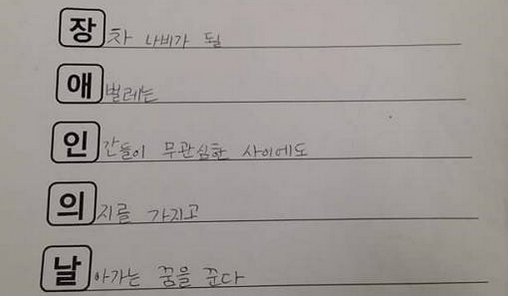 장차 나비가 될
애벌레는
인간들이 무관심한 사이에도
의지를 가지고
날아가는 꿈을 꾼다